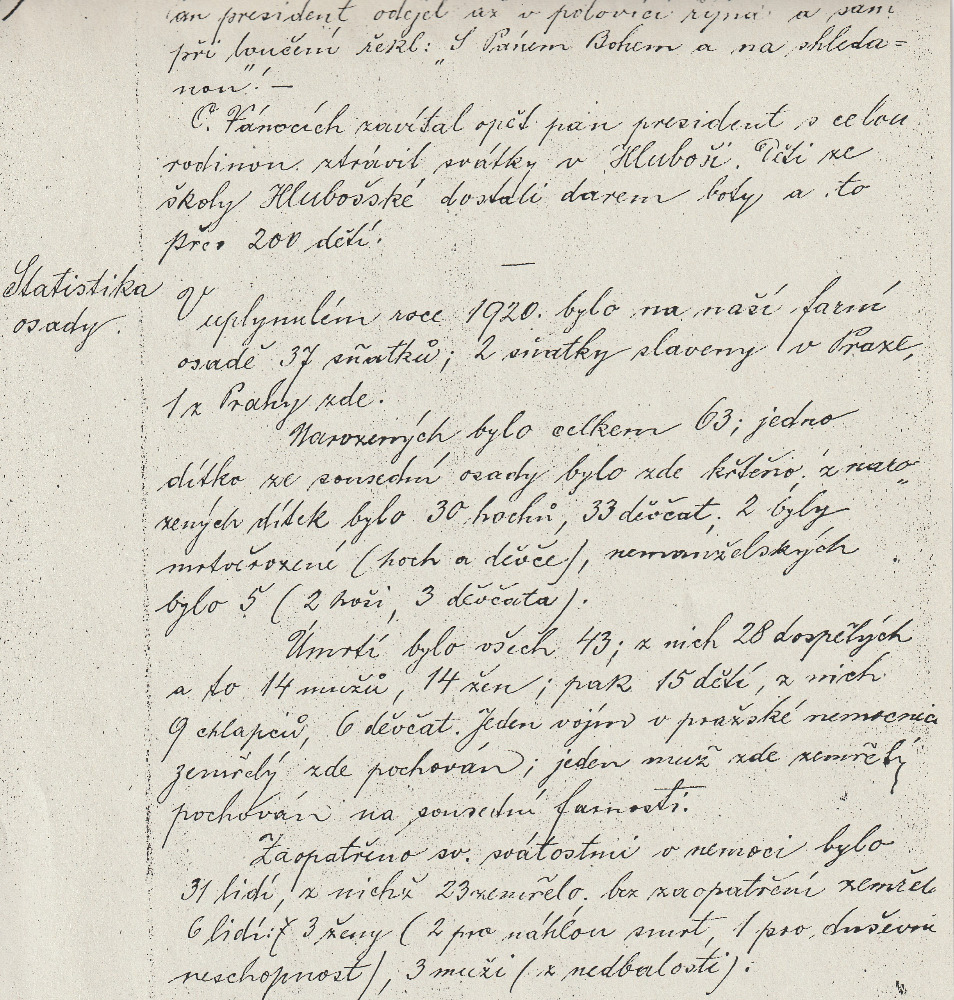 pan president odejel až v polovici října a sám
při loučení řekl: „S Pánem Bohem a na shleda=
nou“! —
O Vánocích zavítal opět pan president s celou
rodinou ztrávil svátky v Hluboši. Děti ze
školy Hlubošské dostali darem boty a to
přes 200 dětí.
—
Statistika
osady.
V uplynulém roce 1920. bylo na naší farní
osadě 37 sňatků; 2 sňatky slaveny v Praze,
1 z Prahy zde.
Narozených bylo celkem 63; jedno
dítko ze sousední osady bylo zde křtěno; z naro„
zených dítek bylo 30 hochů, 33 děvčat; 2 byly
mrtvěrozené (hoch a děvče), nemanželských
bylo 5 (2 hoši, 3 děvčata).
Úmrtí bylo všech 43; z nich 28 dospělých
a to 14 mužů, 14 žen; pak 15 dětí, z nich
9 chlapců, 6 děvčat. Jeden vojín v pražské nemocnici
zemřelý zde pochován; jeden muž zde zemřelý
pochován na sousední farnosti.
Zaopatřeno sv. svátostmi v nemoci bylo
31 lidí, z nichž 23 zemřelo. bez zaopatření zemřelo
6 lidí: 3 ženy (2 pro náhlou smrt, 1 pro duševní
neschopnost), 3 muži (z nedbalosti).